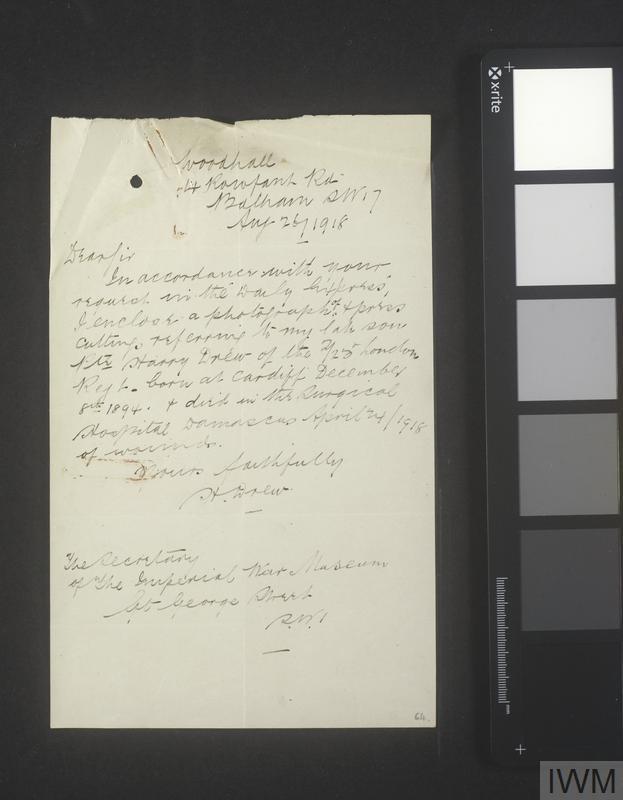 Woodhall
14 Rowfant Rd
Balham SW17
Aug 26/1918
Dear Sir
In accordance with your
request in the Daily Express,
I enclose a photograph of, & press
cutting, referring to my late son
Pte Harry Drew of the 2/25 London
Regt. born at Cardiff December
8th 1894. & died in the Surgical
Hospital Damascus April 24/1918
of wounds.
Yours faithfully
H. Drew
The Secretary
of The Imperial War Museum
Gt George Street
S.W.1
64.
x·rite
mm
IWM